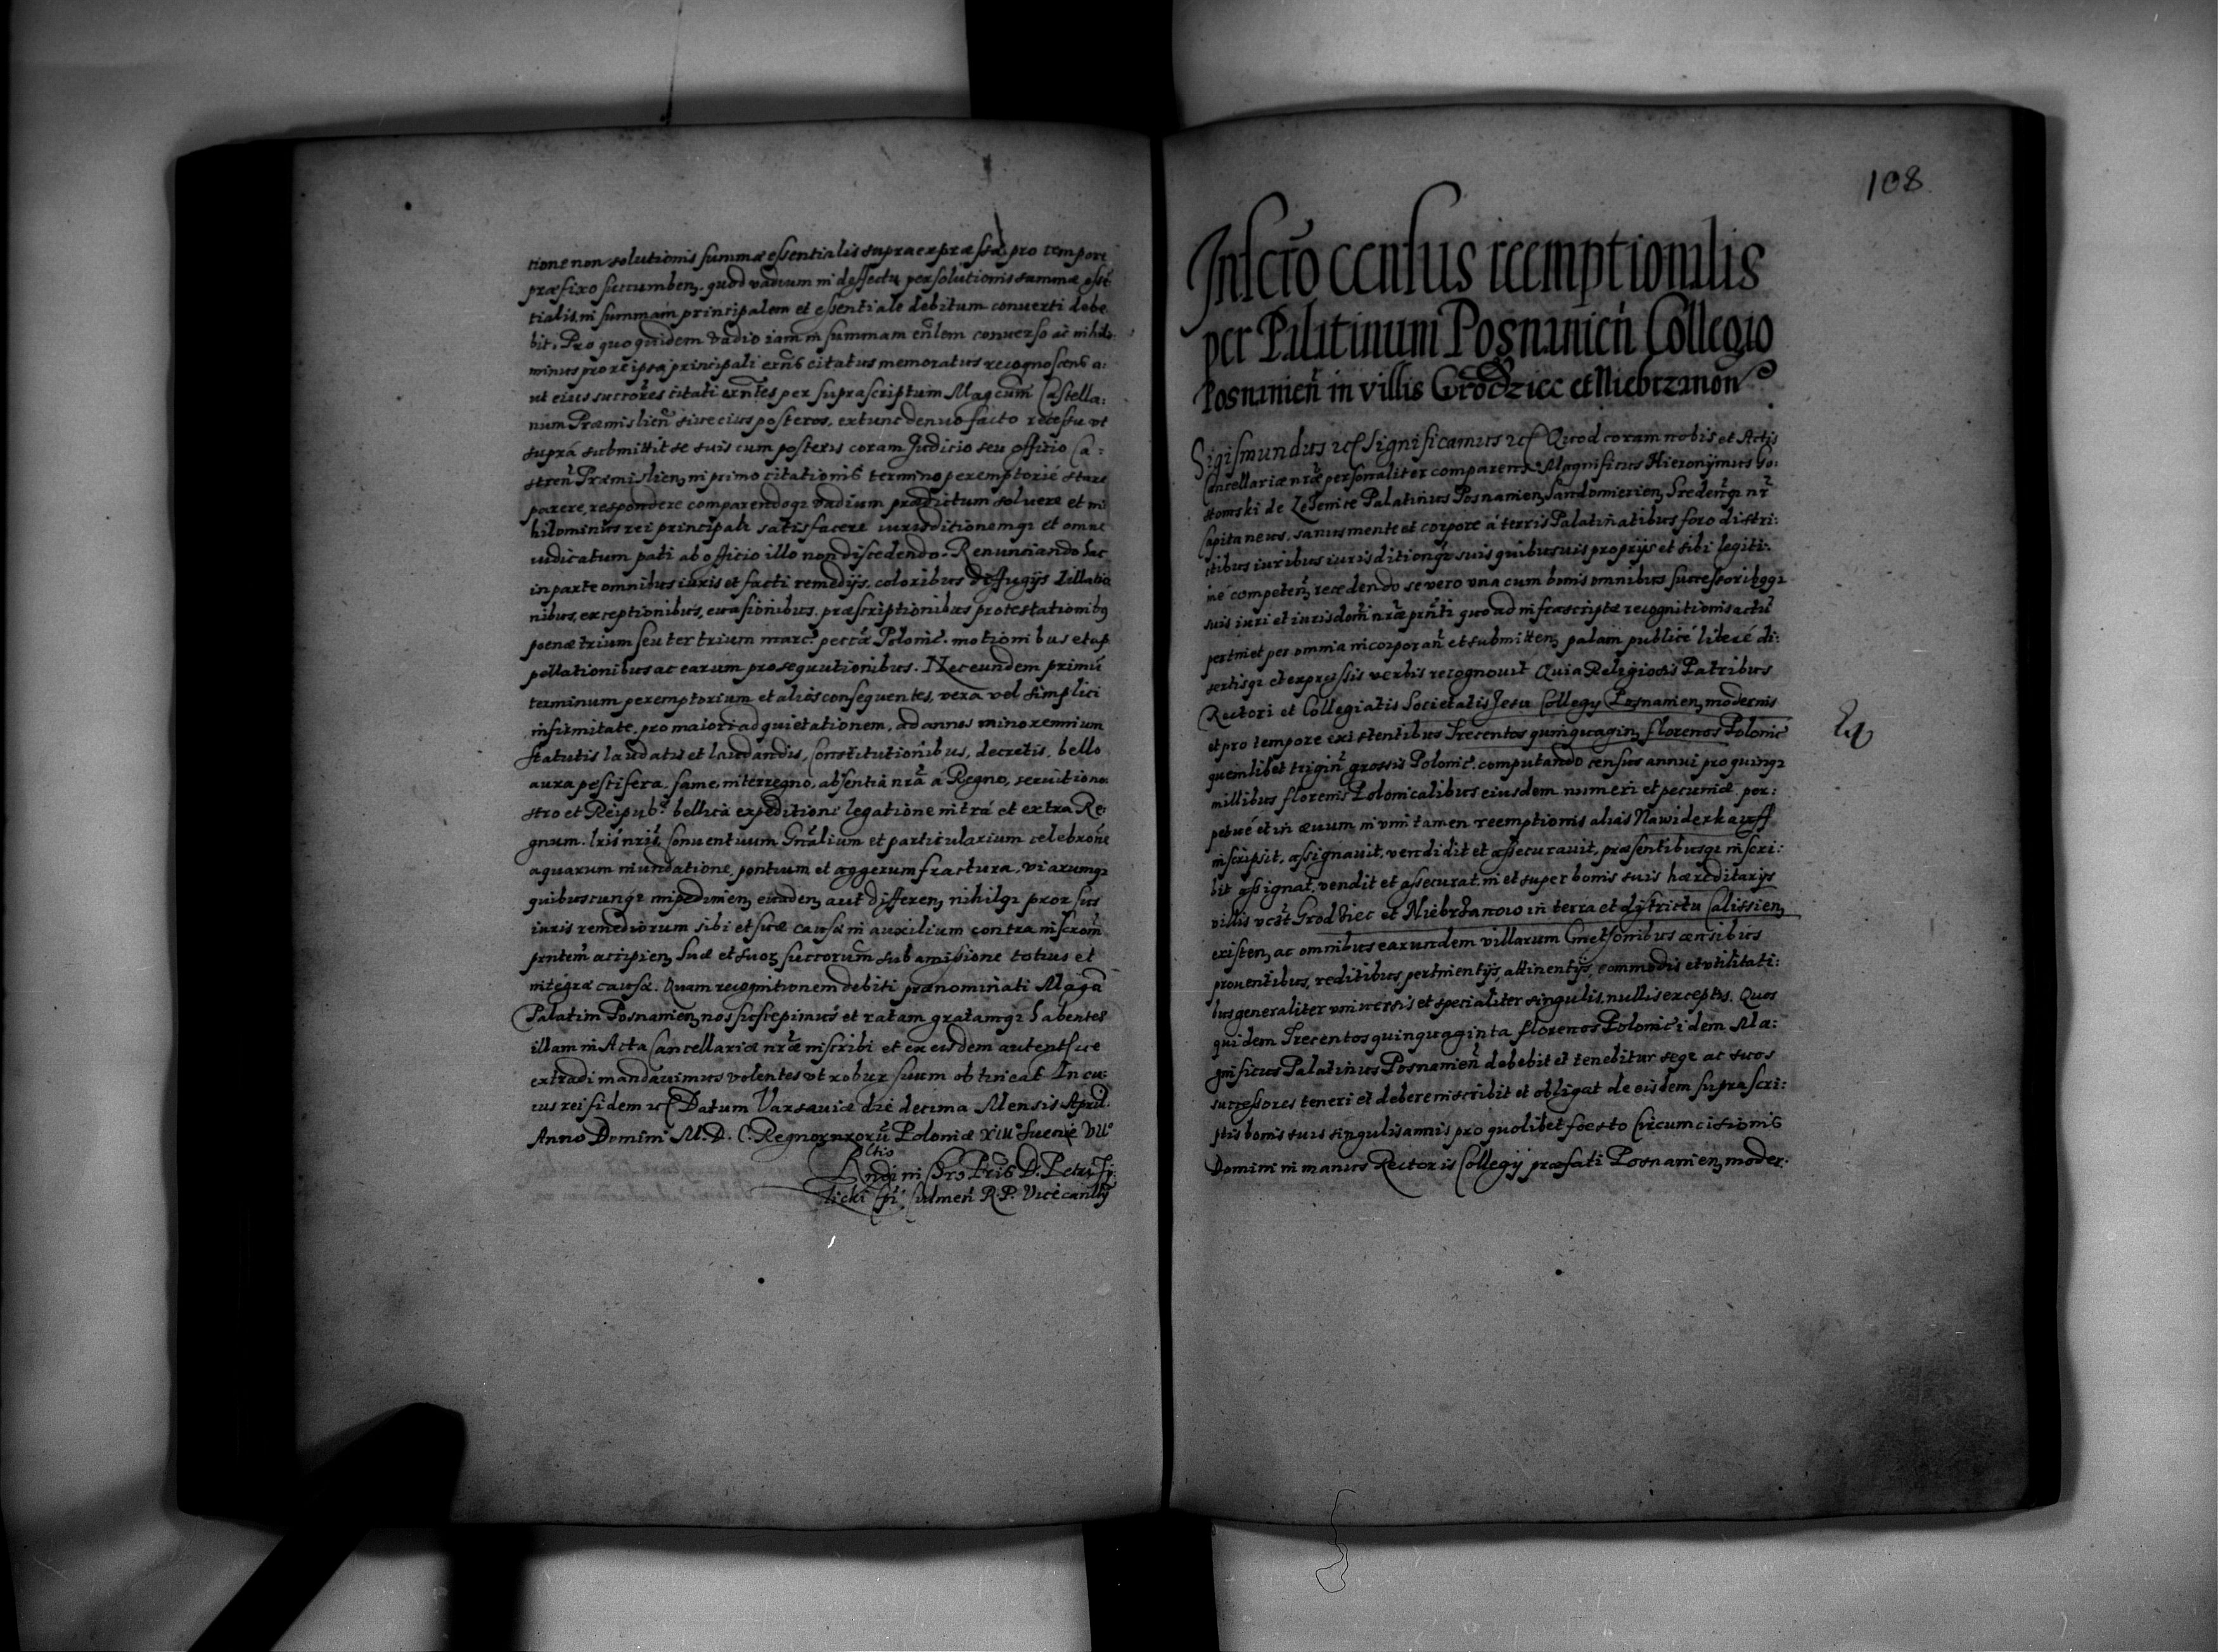 tione non solutionis summæ essentialis supraexpræssæ pro tempore
præfixo succumben. quod vadium in deffectu persolutionis summæ essen
tialis, in summam principalem et essentiale debitum conuerti debe
bit. Pro quo quidem vadio iam in summam eñdem conuerso ac nihilo
minus pro re ipsa principali exñs citatus memoratus recognoscens a:
ut eius succores citati exñtes per suprascriptum Magcum Castella:
num Præmislień siue eius posteros, extunc denuo facto recessu vt
supra submittit se suis cum posteris coram Judicio seu officio Ca:
streń Præmislien, in primo citationis termino peremptorié stare
parere, respondere comparendoq3 vadium prædictum soluere et ni
hilominus rei principali satisfacere iurisditionemq3 et omne
iudicatum pati ab officio illo non discedendo. Renunciando hac
in parte omnibus iuris et facti remedijs, coloribus diffugijs dillatio
nibus, exceptionibus, euasionibus, præscriptionibus protestationibq
poenæ trium seu ter trium marc. peccæ Polonic. motionibus et ap
pellationibus ac earum prosequutionibus. Nec eundem primū
terminum peremptorium et alias consequentes, vera vel simplici
infirmitate, pro maiori ad quietationem, ad annos minorennium
statutis laudatis et laudandis, Constitutionibus, decretis, bello
aura pestifera, fame, interregno, absentia nrã a Regno, seruitio no
stro et Reipub. bellica expeditione legatione intrá et extra Re:
gnum. lris nris, Conuentuum Gñalium et particularium celebrone
aquarum inundatione, pontium et aggerum fractura, viarumq3
quibuscunq3 impedimen, euaden, aut differen, nihilq3 prorsus
iuris remediorum sibi et suæ causæ in auxilium contra inscrom
pñtem accipien, suæ et suor succorum sub amissione totius et
integræ causæ. Quam recognitionem debiti prænominati Magci
Palatini Posnanien, nos suscepimus et ratam gratamq3 habentes
illam in Acta Cancellariæ nræ inscribi et ex eisdem autentsice
extradi mandauimus volentes vt robur suum obtineat. In cu:
ius rei fidem etc Datum Varsauiæ die decima Mensis April.
Anno Domini M.D.C. Regnor nrorū Poloniæ XIII° Sueciæ VII°
Rltio
Rndi in Chro Pris D. Petri Ti:
licki Epi Culmeń R.P. Vicecanlly
108
Inscrõ census reemptionalis
per Palatinum Posnanień Collegio
Posnanień in villis Grodziec et Niebrzanow
Sigismundus etc Significamus etc Quod coram nobis et Actis
Cancellariæ nræ personaliter comparens Magnificus Hieronÿmus Go:
stomski de Lezenice Palatinus Posnanien, Sandomierien, Sredenq3 nr
Capitaneus, sanus mente et corpore á terris Palatinatibus foro distri:
ctibus iuribus iurisditionq3 suis quibusuis proprijs et sibi legiti:
mé competen, recedendo se vero vna cum bonis omnibus successoribqq3
suis iuri et iurisdoni nræ pñti quo ad infrascriptæ recognitionis actū
pertinet per omnia incorporań et submitten, palam publicé liberé di:
sertisq3 et expressis verbis recognouit Quia Religiosis Patribus
Rectori et Collegiatis Societatis Jesu Collegij Posnanien, modernis
et pro tempore existentibus Trecentos quinquagin, florenos Polonic
quemlibet trigiń grossis Polonic. computando census annui pro quinq3
millibus florenis Polonicalibus eiusdem numeri et pecuniæ per:
petué et in æuum, in vim tamen reemptionis alias Nawiderkauff
inscripsit, assignauit, vendidit et assecurauit, præsentibusq3 inscri:
bit assignat, vendit et assecurat, in et super bonis suis hæreditarijs
villis vcst Grodziec et Niebrzanow in terra et dÿstrictu Calissien,
existen, ac omnibus earundem villarum Cmetonibus censibus
prouentibus, reditibus, pertinentijs, attinentijs, commodis et vtilitati:
bus generaliter vniuersis et specialiter singulis, nullis exceptis. Quos
quidem Trecentos quinquaginta florenos Polonic idem Ma:
gnificus Palatinus Posnanień debebit et tenebitur seqe ac suos
successores teneri et debere inscribit et obligat de eisdem suprascri:
ptis bonis suis singulis annis pro quolibet foesto Circumcisionis
Domini in manus Rectoris Collegij præfati Posnanien, moder: